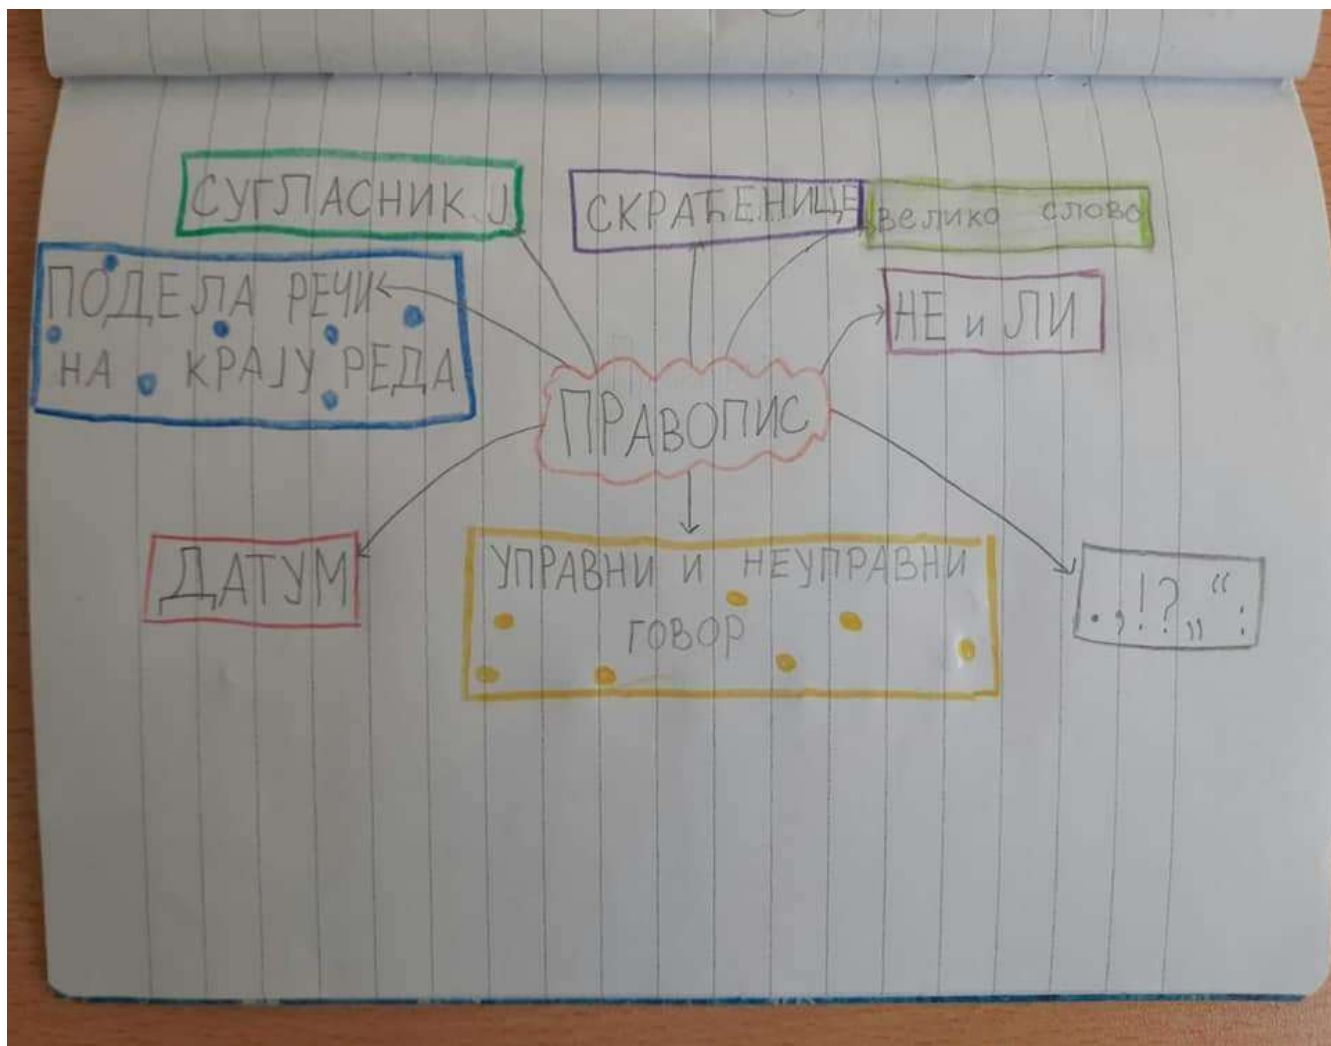 СУГЛАСНИК J
СКРАЋЕНИЦЕ
велико слово
ПОДЕЛА РЕЧИ
НА КРАЈУ РЕДА
НЕ и ЛИ
ПРАВОПИС
ДАТУМ
УПРАВНИ И НЕУПРАВНИ
ГОВОР
. , ! ? „ “ :